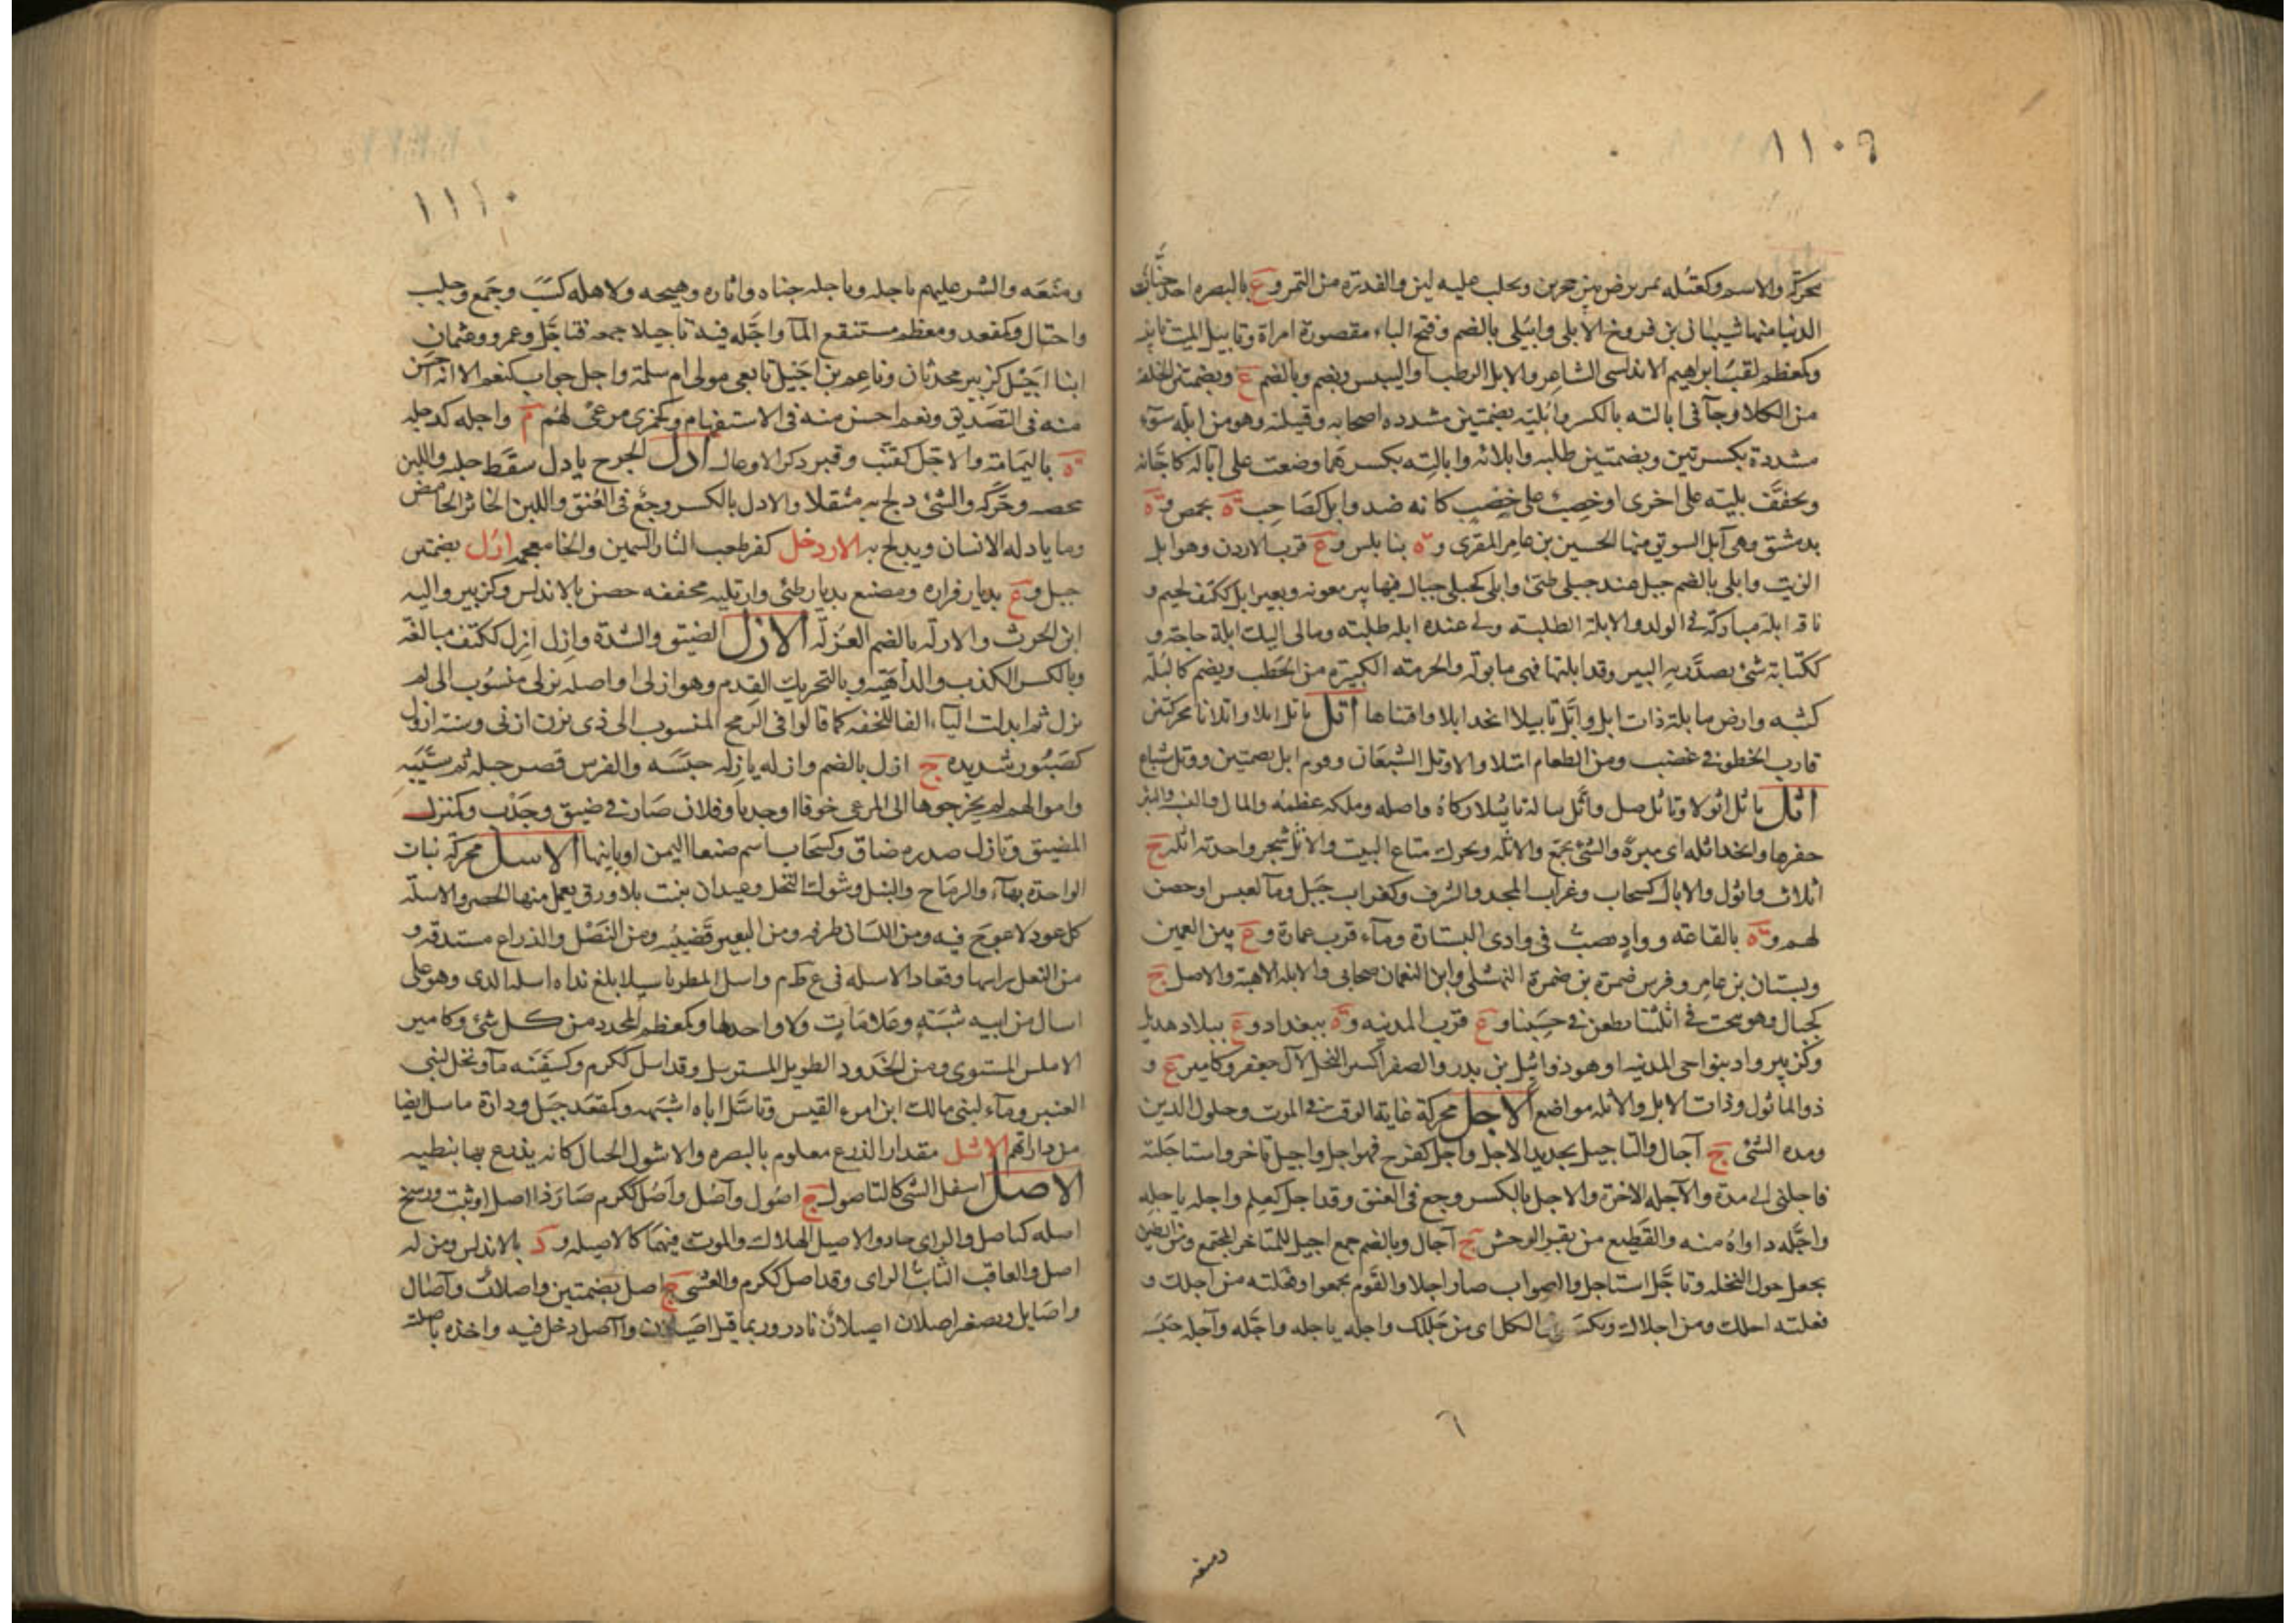 ١١٠٩
محركة والاسم وكعتله تمر يرض بين حجرين ويحلب عليه لبن والفدرة من التمر وع بالبصره احد جنان
الدنيا منها شيبان بن فروخ الأبلي وابيلى بالضم وفتح الباء مقصورة امراة وتابيل الميت تابينه
وكمعظم لقب ابراهيم الاندلسى الشاعر والابل الرطب او اليبس ويضم وبالضم ع وبضمتين الخلفة
من الكلا وجآ فى ابالته بالكسر وابليته بضمتين مشدده اصحابه وقبيلته وهو من ابلة سوء
مشددة بكسرتين وبضمتين طلبه وابلاته وابالته بكسرهما وضغث على ابالة كاجانة
ويخفف بلية على اخرى او خصب على خصب كانه ضد وابل كصاحب ة بحمص وة
بدمشق وهى آبل السوق منها الحسين بن عامر المقرى وة بنابلس وع قرب الاردن وهو ابل
الزيت وابلى بالضم جبل عند جبلى طيئ وابلى كحبلى جبال فيها بير معونه وبعير ابل ككتف لحيم و
ناقة ابلة مباركة فى الولد والابلة الطلبة ولى عنده ابلة طلبته ومالى اليك ابلة حاجة و
ككتابة شئ يصدر به البير وقد ابلتها فهى مابولة والحرمة الكبيرة من الحطب ويضم كالبلة
كثبه وارض مابلة ذات ابل وابل تابيلا اتخذ ابلا واقتناها أتل ياتل اتلا واتلانا محركتين
قارب الخطو فى غضب ومن الطعام امتلا والاوتل الشبعان وقوم اتل بضمتين ووتل شباع
اثل ياثل اثولا وتاثل اصل واثل ماله تاثيلا زكاه واصله وملكه عظمه والمال والبئر
حفرها واتخذ اثلة اى ميرة والشئ تجمع والاثلة ويحرك متاع البيت والاثل شجر واحدته اثلة ج
اثلات واثول والاثال كسحاب وغراب المجد والشرف وكغراب جبل ومآ لعبس او حصن
لهم وة بالقاعة وواد يصب فى وادى الستارة ومآء قرب غمازة وع بين الغمير
وبستان بن عامر وفرس ضمرة بن ضمرة النهشلى وابن النعمان صحابى والاثلة الاهبة والاصل ج
كجبال وهو ينحت فى اثلتنا يطعن فى حسبنا وع قرب المدينه وة ببغداد وع ببلاد هذيل
وكزبير واد بنواحى المدينه او هو ذو اثيل بين بدر والصفرا كثير النخل لآل جعفر وكامير ع و
ذو الماثول وذات الاثل والاثلة مواضع الاجل محركة غاية الوقت فى الموت وحلول الدين
ومدة الشئ ج آجال والتاجيل تحديد الاجل واجل كفرح فهو اجل واجيل تاخر واستاجلته
فاجلنى الى مدة والآجلة الاخرة والاجل بالكسر وجع فى العنق وقد اجل كعلم واجله ياجله
واجله داواه منه والقطيع من بقر الوحش ج آجال وبالضم جمع اجيل للمتاخر والمجتمع ومن الطين
يجعل حول النخله وتاجل استاجل والصواب صار اجلا والقوم تجمعوا وفعلته من اجلك و
فعلته اجلك ومن اجلالك ويكسر فى الكل اى من جللك واجله ياجله واجله وآجله حبسه
٦
ومنعه
١١١٠
ومنعه والشر عليهم ياجله وياجله جناه واثاره وهيجه ولاهله كسب وجمع وجلب
واحتال وكمقعد ومعظم مستنقع المآ واجله فيه تاجيلا جمعه فتاجل وعمرو وعثمان
ابنا اجيل كزبير محدثان وناعم بن اجيل تابعى مولى ام سلمة واجل جواب كنعم الا انه احسن
منه فى التصديق ونعم احسن منه فى الاستفهام وكجمزى مرعى لهم م واجله كدجله
ة باليمامة والاجل كقنب وقبر ذكر الاوعال ادل الجرح يادل سقط جلبه واللبن
مخضه وحركه والشئ دلج به مثقلا والادل بالكسر وجع فى العنق واللبن الخاثر الحامض
وما يادله الانسان ويدلج به الاردخل كقرطعب التار السمين والخا معجمه ارل بضمتين
جبل وع بديار فزاره ومصنع بديار طئى وارتلية مخففة حصن بالاندلس وكزبير واليه
ابن الحرث والارلة بالضم الغرلة الازل الضيق والشدة وازل ازل ككتف مبالغة
وبالكسر الكذب والداهية وبالتحريك القدم وهو ازلى او اصله يزلى منسوب الى لم
يزل ثم ابدلت اليآء الفا للخفة كما قالوا فى الرمح المنسوب الى ذى يزن ازنى وسنة ازول
كصبور شديده ج ازل بالضم وازله يازله حبسه والفرس قصر حبله ثم سيبه
واموالهم لم يخرجوها الى المرعى خوفا او جدبا وفلان صار فى ضيق وجدب وكمنزل
المضيق وتازل صدره ضاق وكسحاب اسم صنعا اليمن او بانيها الاسل محركة نبات
الواحدة بهآء والرماح والنبل وشوك النخل وعيدان تنبت بلا ورق يعمل منها الحصر والاسلة
كل عود لا عوج فيه ومن اللسان طرفه ومن البعير قضيبه ومن النصل والذراع مستدقه و
من النعل راسها وقعاد الاسله فى ع ظ م واسل المطر تاسيلا بلغ نداه اسلة اليد وهو على
اسال من ابيه شبه وعلامات ولا واحد لها وكمعظم المحدد من كل شئ وكامير
الاملس المستوى ومن الخدود الطويل المسترسل وقد اسل ككرم وكسفينة مآ ونخل لبنى
العنبر ومآء لبنى مالك ابن امرء القيس وتاسل اباه اشبهه وكمقعد جبل ودارة ماسل ايضا
من داراتهم الاشل مقدار الذرع معلوم بالبصره والاشول الحبال كانه يذرع بها نبطيه
الاصل اسفل الشئ كالتاصول ج اصول وآصل واصل ككرم صار ذا اصل او ثبت ورسخ
اصله كتاصل والراى جاد والاصيل الهلاك والموت فيهما كالاصيله ود بالاندلس ومن له
اصل والعاقب الثابت الراى وقد اصل ككرم والعشى ج اصل بضمتين واصلان وآصال
واصايل وتصغير اصلان اصيلان نادر وربما قيل اصيلان وآصل دخل فيه واخذه باصلته